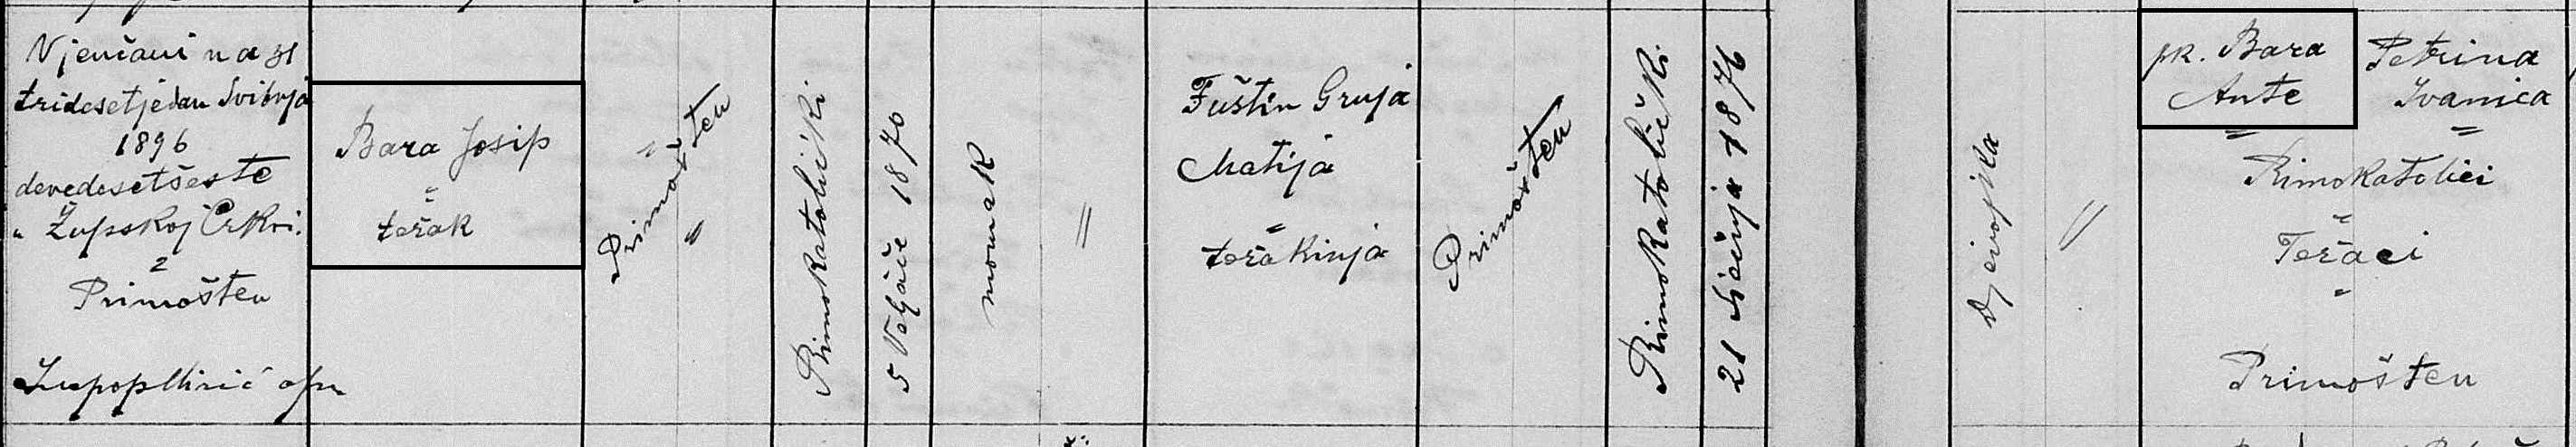 Vjenčani na 31
tridesetjedan Svibnja
1896
devedesetšeste
u Župskoj Crkvi
Primošten
Bara Josip
težak
Primošten
Rimokatolički
5 Veljače 1870
momak
Fuštin Gruja
Matija
težakinja
Primošten
Rimokatolički
21 Siečnja 1876
Djevojka
pk. Bara
Ante
Petrina
Ivanica
Rimokatolici
Težaci
Primošten